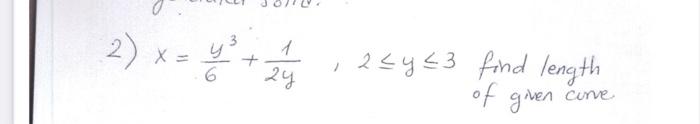 2) x = y³/6 + 1/2y , 2 ≤ y ≤ 3 find length
of given curve